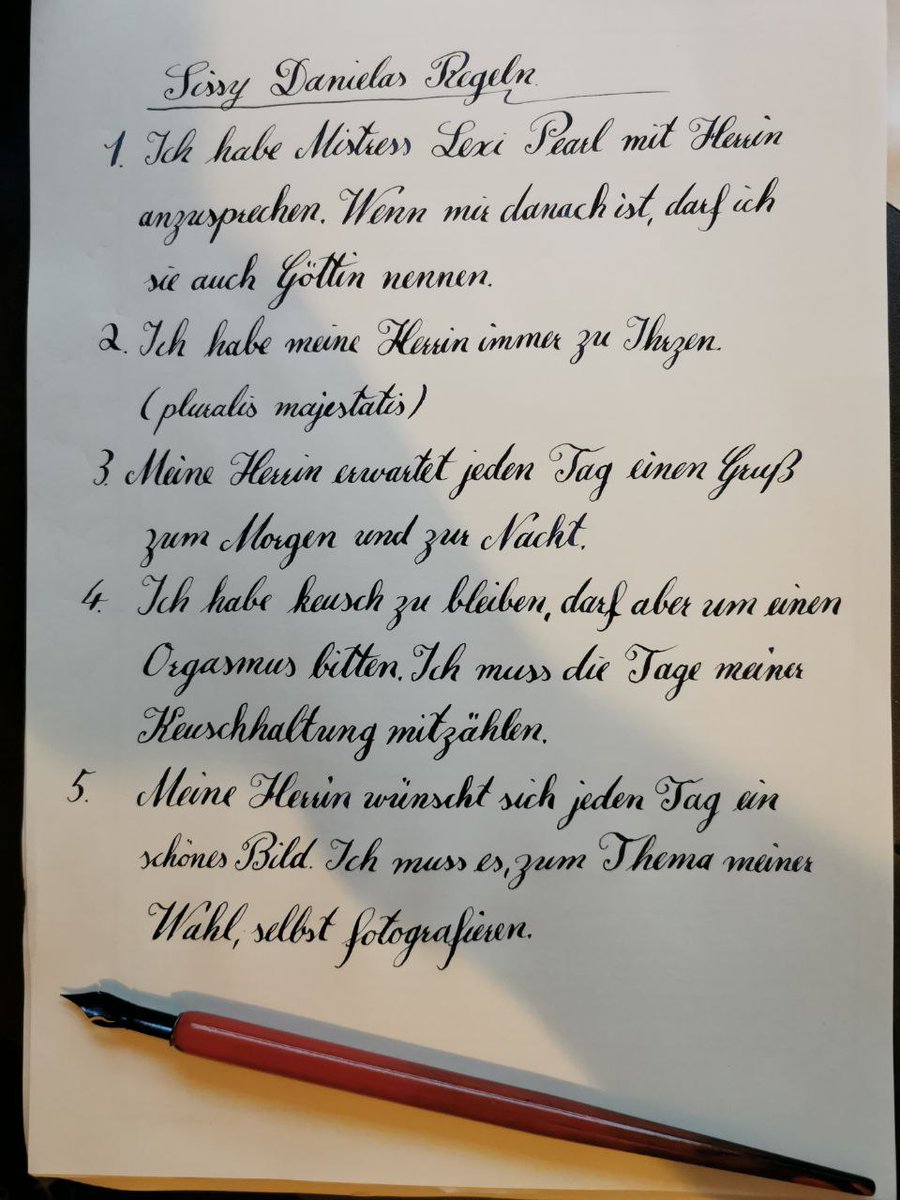 Sissy Danielas Regeln.
1. Ich habe Mistress Lexi Pearl mit Herrin
anzusprechen. Wenn mir danach ist, darf ich
sie auch Göttin nennen.
2. Ich habe meine Herrin immer zu Ihrzen.
(pluralis majestatis)
3. Meine Herrin erwartet jeden Tag einen Gruß
zum Morgen und zur Nacht.
4. Ich habe keusch zu bleiben, darf aber um einen
Orgasmus bitten. Ich muss die Tage meiner
Keuschhaltung mitzählen.
5. Meine Herrin wünscht sich jeden Tag ein
schönes Bild. Ich muss es, zum Thema meiner
Wahl, selbst fotografieren.